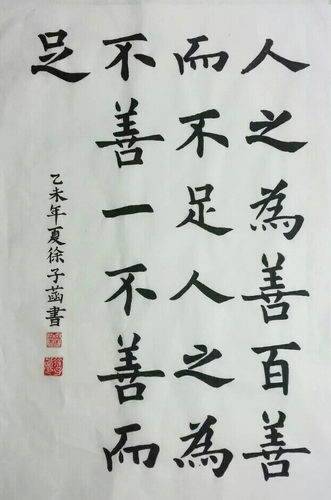 人之為善百善
而不足人之為
不善一不善而
足
乙未年夏徐子菡書